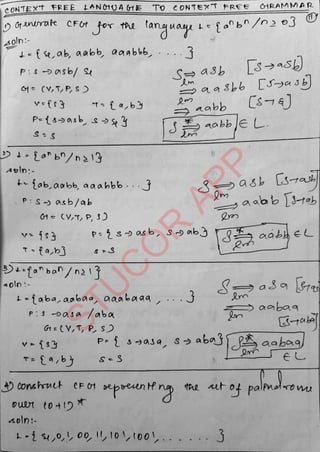 CONTEXT FREE LANGUAGE TO CONTEXT FREE GRAMMAR
11
1) Generate CFG for the language L = {aⁿbⁿ / n ≥ 0}
soln:-
L = {ε, ab, aabb, aaabbb, . . . . }
P : S → asb / ε
G = (V, T, P, S)
V = {S} T = {a, b}
P = {S → asb, S → ε}
S = S
S ⇒lm asb [S → asb]
⇒lm aasbb [S → asb]
⇒lm aabb [S → ε]
S ⇒*lm aabb ∈ L
2) L = {aⁿbⁿ / n ≥ 1}
soln:-
L = {ab, aabb, aaabbb . . . }
P : S → asb / ab
G = (V, T, P, S)
V = {S} P = {S → asb, S → ab}
T = {a, b} S = S
S ⇒lm asb [S → asb]
⇒lm aabb [S → ab
S ⇒*lm aabb ∈ L
3) L = {aⁿbaⁿ / n ≥ 1}
soln:-
L = {aba, aabaa, aaabaaa, . . . . }
P : S → asa / aba
G = (V, T, P, S)
V = {S} P = {S → asa, S → aba}
T = {a, b} S = S
S ⇒lm asa
⇒lm aabaa
[S → aba]
S ⇒*lm aabaa
∈ L
4) Construct CFG representing the set of palindrome
over (0+1)*
soln:-
L = {ε, 0, 1, 00, 11, 101, 1001, . . . . . . }
STUCOR APP